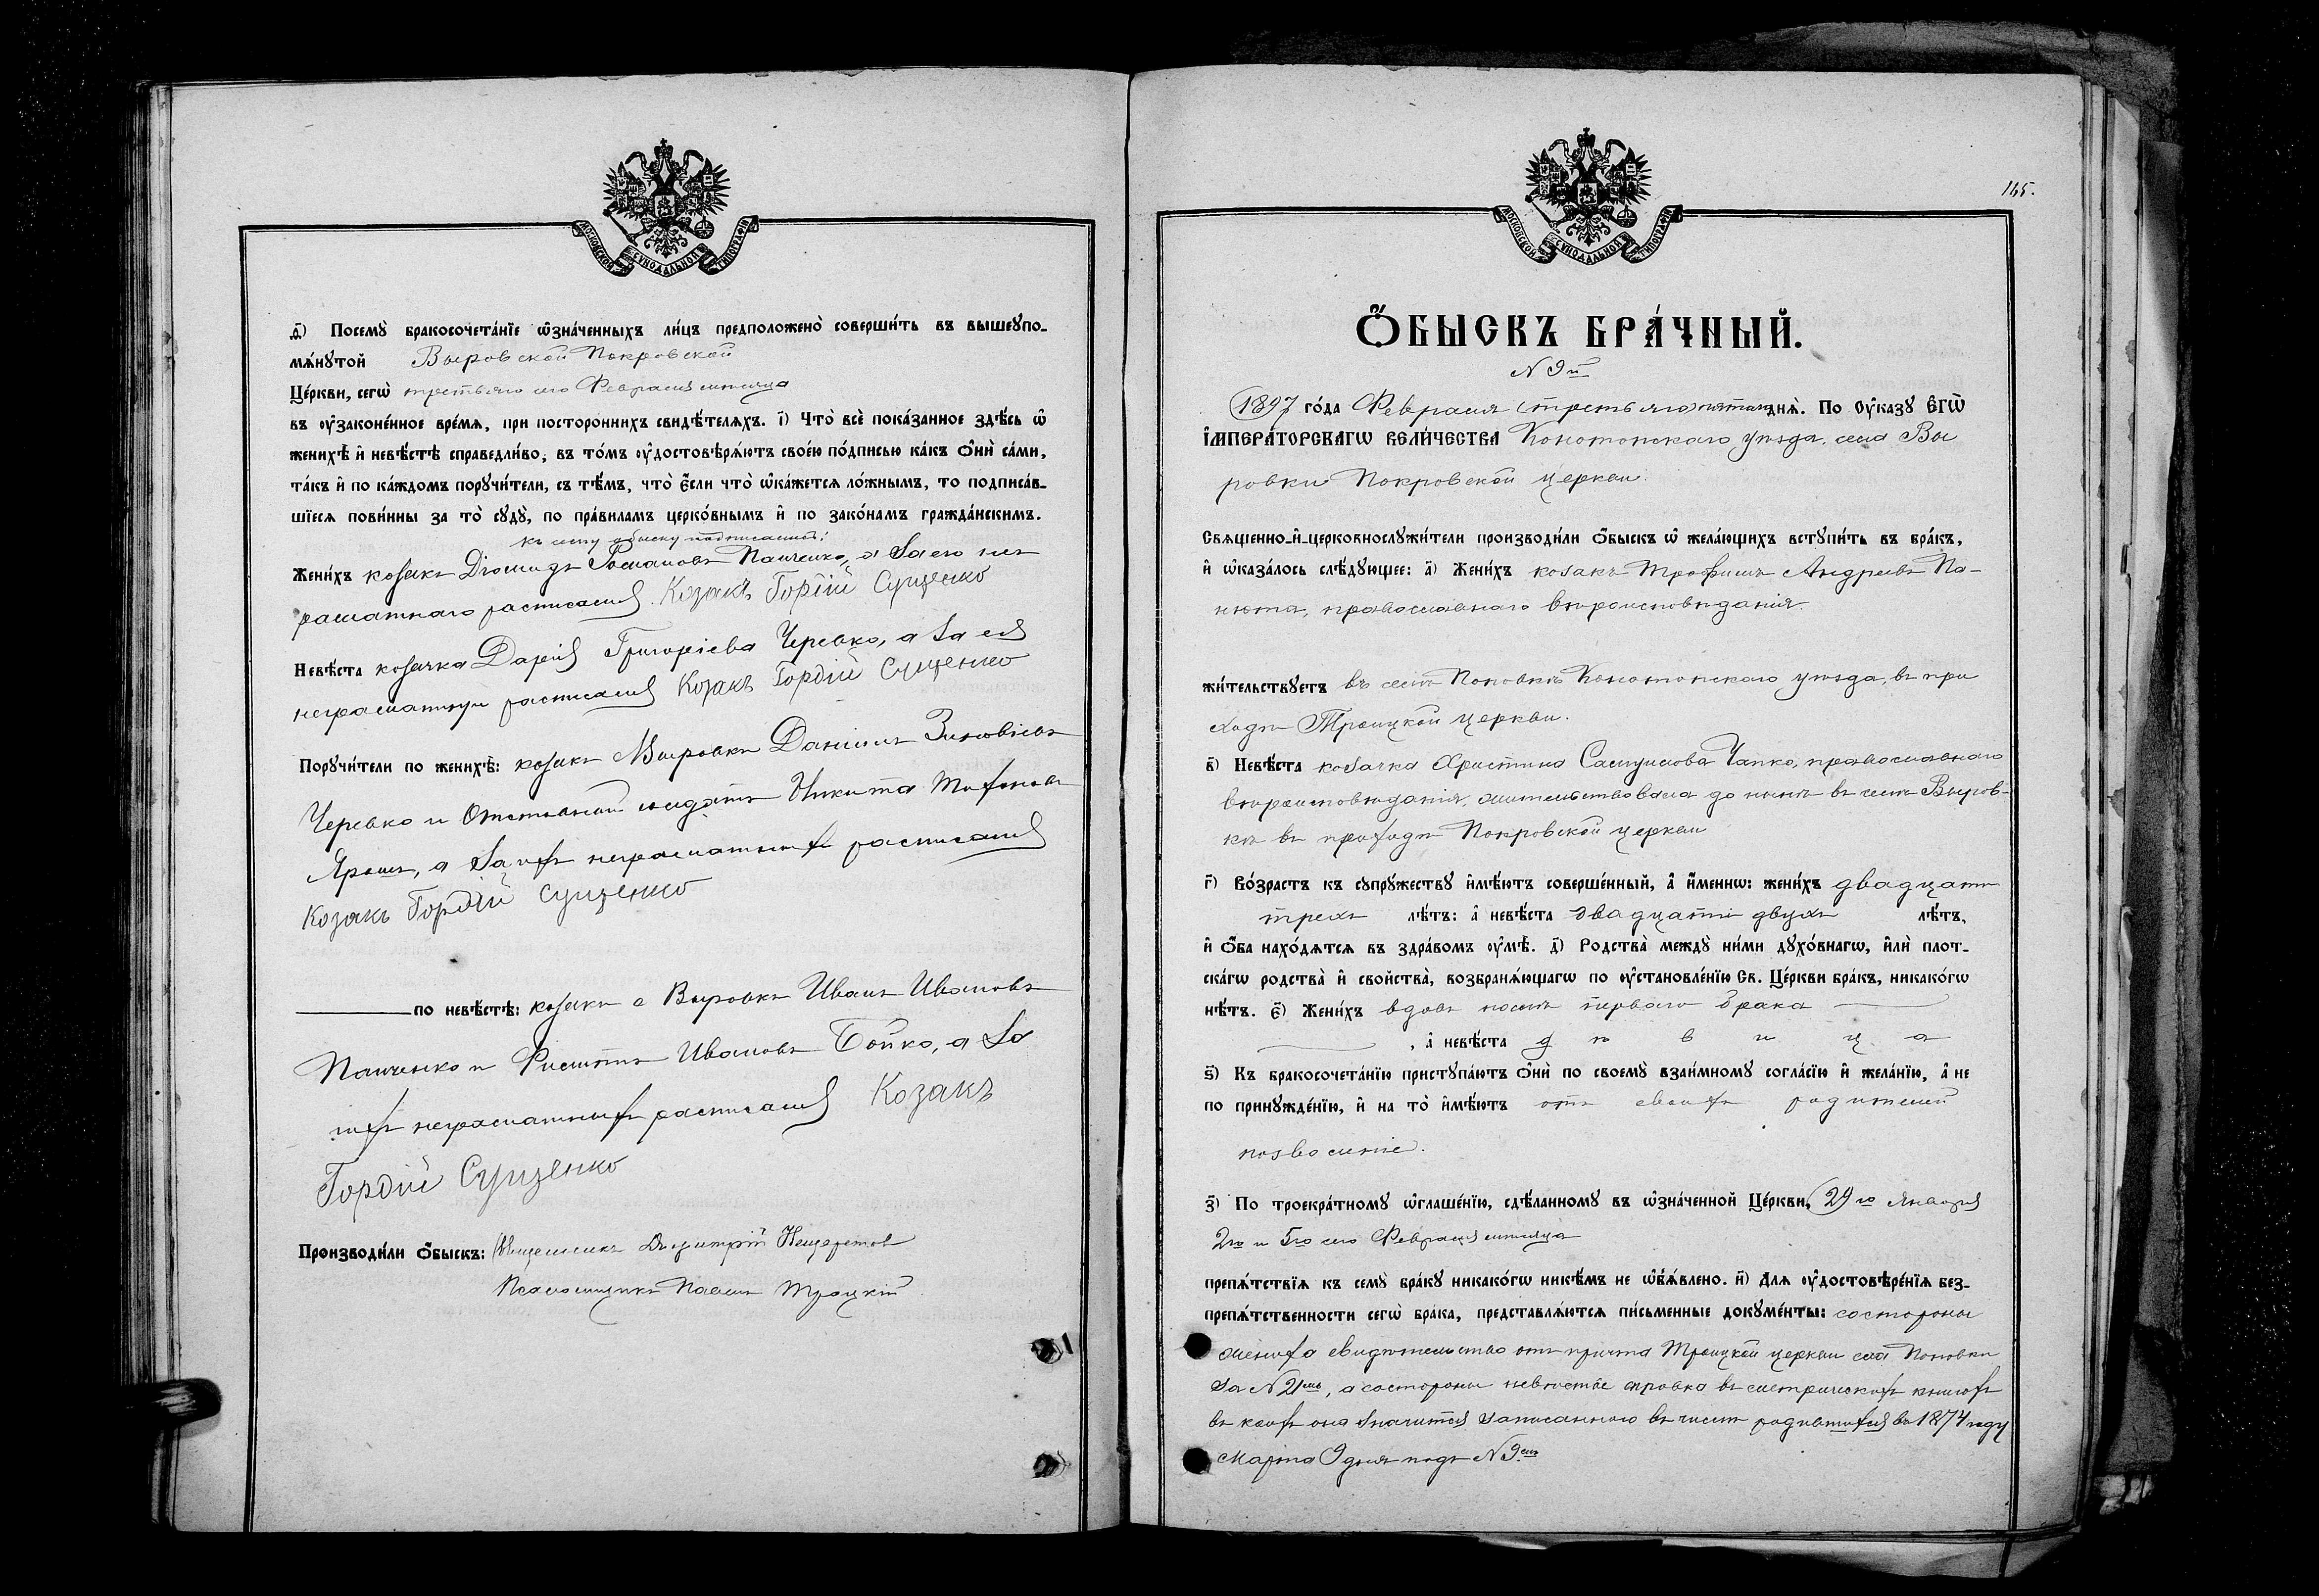 МОСКОВСКОЙ СУНОДАЛЬНОЙ ТИПОГРАФІИ
д҃) Посемꙋ̀ бракосочета́нїе ѡ҆зна́ченныхъ ли́цъ предположено̀ соверши́ть въ вышеꙋпо-
мѧ́нꙋтой Выровской Покровской
Це́ркви, сегѡ̀ третьяго сего Февраля мѣсяца
въ ᲂу҆законе́нное вре́мѧ, при постороннихъ свидѣ́телѧхъ. і҃) Что̀ всѐ пока́занное здѣ́сь ѡ҆
женихѣ̀ и҆ невѣ́стѣ справедли́во, въ то́мъ ᲂу҆достовѣрѧ́ютъ свое́ю по́дписью ка́къ ѻ҆нѝ са́ми,
та́къ и҆ по ка́ждомъ порꙋчи́тели, съ тѣ́мъ, что̀ є҆́сли что̀ ѡ҆ка́жетсѧ ло́жнымъ, то подписа́в-
шїесѧ пови́нны за то̀ сꙋдꙋ̀, по пра́виламъ церко́внымъ и҆ по зако́намъ гражда́нскимъ.
къ сему обыску подписались:
Жени́хъ козакъ Діомидъ Романовъ Панченко, а за его не
граматнаго расписался Козакъ Гордій Сущенко
Невѣ́ста козачка Дарія Григоріева Черевко, а за ея
неграматную расписался Козакъ Гордій Сущенко
Порꙋчи́тели по женихѣ̀: козакъ с Выровки Даніилъ Зиновіевъ
Черевко и Отставной солдатъ Никита
Ярошъ, а за ихъ неграматныхъ расписался
Козакъ Гордій Сущенко
по невѣ́стѣ: козаки с Выровки Иванъ Ивановъ
Панченко и Филиппъ Ивановъ Бойко, а за
ихъ неграматныхъ расписался Козакъ
Гордій Сущенко
Производи́ли ѻ҆́быскъ: Священникъ Димитрій Нещеретов
Псаломщикъ Павелъ Троцкій
165.
МОСКОВСКОЙ СУНОДАЛЬНОЙ ТИПОГРАФІИ
Ѻ҆́БЫСКЪ БРА́ЧНЫЙ.
N 9й
1897 го́да Февраля (третьяго) пятаго днѧ̀. По ᲂу҆казꙋ Є҆ГѠ̀
І҆МПЕРА́ТОРСКАГѠ ВЕЛИ́ЧЕСТВА Конотопскаго уѣзда, села Вы
ровки Покровской церкви.
Свѧщенно-и҆-церковнослꙋжи́тели производи́ли ѻ҆́быскъ ѡ҆ жела́ющихъ встꙋпи́ть въ бра́къ,
и҆ ѡ҆каза́лось слѣ́дꙋющее: а҃) Жени́хъ козакъ Трофимъ Андреевъ Па-
нюта, православнаго вѣроисповѣданія.
жи́тельствꙋетъ въ селѣ Поповкѣ Конотопскаго уѣзда, въ при
ходѣ Троицкой церкви.
в҃) Невѣ́ста козачка Христина Самуилова Чапко, православнаго
вѣроисповѣданія, жительствовала до нынѣ въ селѣ Выров-
кѣ въ приходѣ Покровской церкви
г҃) Во́зрастъ къ сꙋпрꙋ́жествꙋ и҆мѣ́ютъ соверше́нный, а҆ и҆́менно: жени́хъ двадцати
трехъ лѣ́тъ: а҆ невѣ́ста двадцати двухъ лѣ́тъ,
и҆ ѻ҆́ба нахо́дѧтсѧ въ здра́вомъ ᲂу҆мѣ̀. д҃) Родства̀ междꙋ̀ ни́ми дꙋхо́внагѡ, и҆лѝ плот-
ска́гѡ родства̀ и҆ свойства̀, возбранѧ́ющагѡ по ᲂу҆становле́нїю Св. Це́ркви бра́къ, никако́гѡ
нѣ́тъ. є҃) Жени́хъ вдовъ послѣ перваго брака
, а҆ невѣ́ста дѣвица
ѕ҃) Къ бракосочета́нїю пристꙋпа́ютъ ѻ҆нѝ по своемꙋ̀ взаи́мномꙋ согла́сїю и҆ жела́нїю, а҆ не
по принꙋжде́нїю, и҆ на то̀ и҆мѣ́ютъ отъ своихъ родителей
позволеніе.
з҃) По троекра́тномꙋ ѡ҆глаше́нїю, сдѣ́ланномꙋ въ ѡ҆зна́ченной Це́ркви, 29го Января
2го и 5го сего Февраля мѣсяца
препѧ́тствїѧ къ семꙋ̀ бра́кꙋ никако́гѡ никѣ́мъ не ѡ҆б̾ѧ́влено. и҃) Длѧ ᲂу҆достовѣре́нїѧ без-
препѧ́тственности сегѡ̀ бра́ка, представлѧ́ютсѧ пи́сьменные докꙋме́нты: со стороны
жениха свидѣтельство отъ причта Троицкой церкви села Поповки
за N 21мъ, а со стороны невѣсты справка въ метрическихъ книгахъ
въ коихъ она значится записанною въ числѣ родившихся въ 1874 году
Марта 9 дня подъ N 9мъ